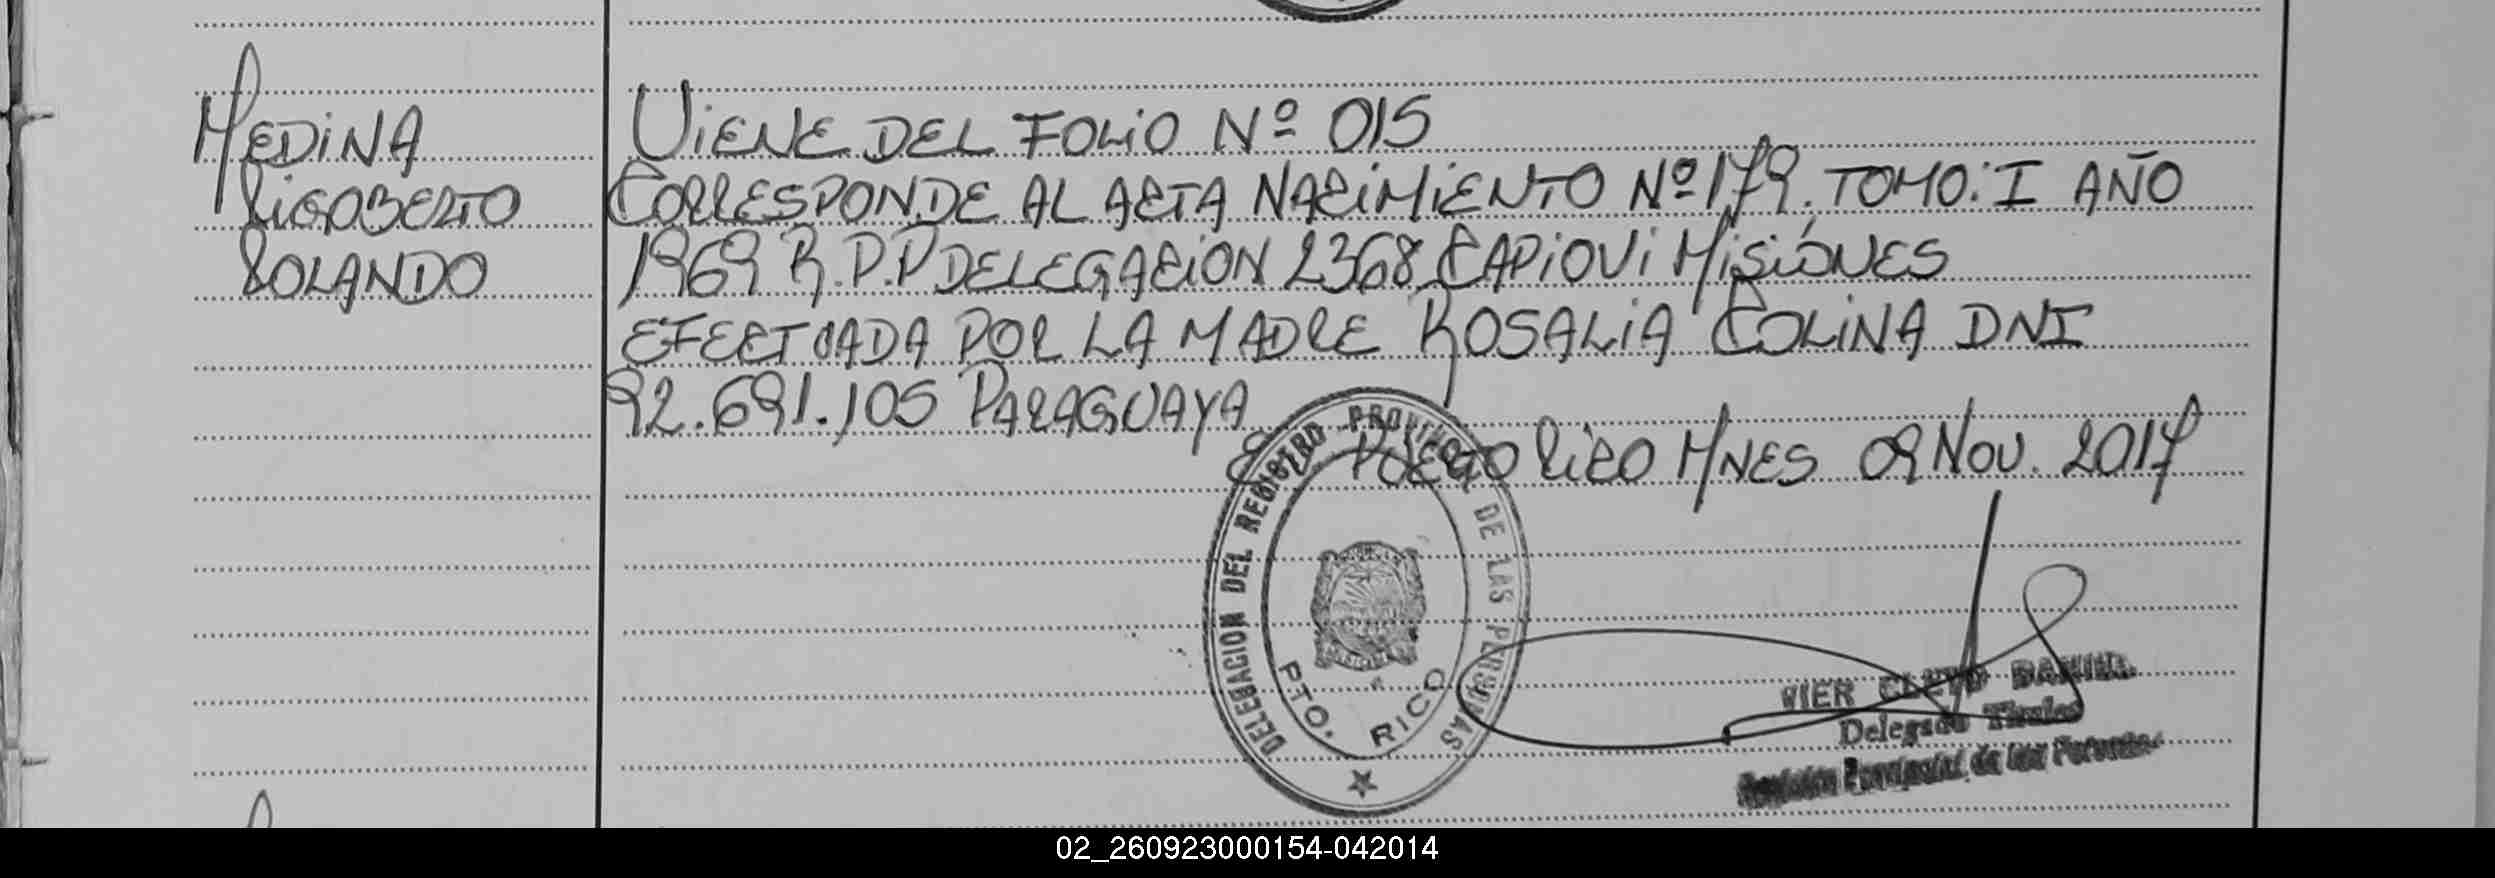 MEDINA
RIGOBERTO
ROLANDO
VIENE DEL FOLIO Nº 015
CORRESPONDE AL ACTA NACIMIENTO Nº 179. TOMO: I AÑO
1969 R.P.P DELEGACION 2368 CAPIOVI MISIONES
EFECTUADA POR LA MADRE ROSALIA COLINA DNI
92.691.105 PARAGUAYA
PUERTO RICO MNES 09 NOV. 2017
DELEGACION DEL REGISTRO PROVINCIAL DE LAS PERSONAS
PTO. RICO
Delegado Titular
Provincial de las Personas
02_260923000154-042014